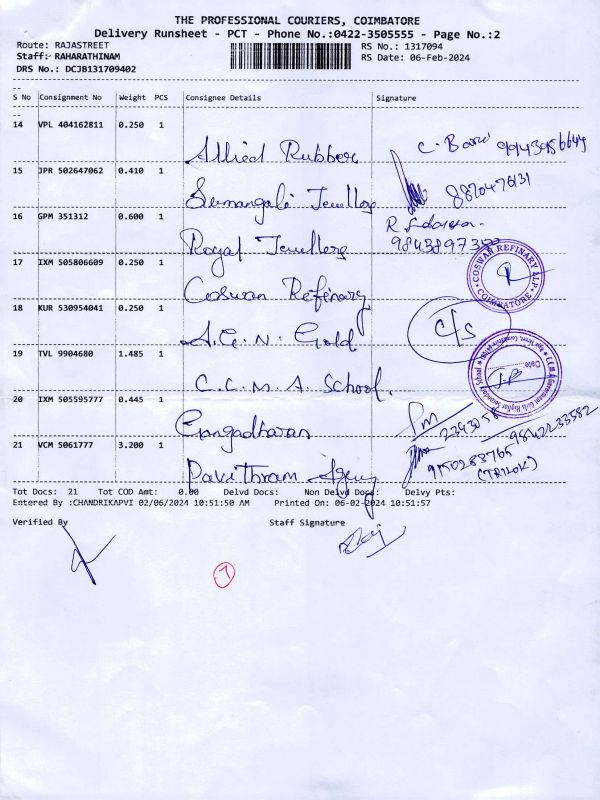 THE PROFESSIONAL COURIERS, COIMBATORE
Delivery Runsheet - PCT - Phone No.:0422-3505555 - Page No.:2
Route: RAJASTREET
RS No.: 1317094
Staff: RAHARATHINAM
RS Date: 06-Feb-2024
DRS No.: DCJB131709402
S No Consignment No Weight PCS Consignee Details Signature
14 VPL 404162811 0.250 1 Allied Rubber
15 JPR 502647062 0.410 1 Sumangali Jewellers 8870476131
16 GPM 351312 0.600 1 Royal Jewellers
17 IXM 505806609 0.250 1 Coswan Refinary
COSWAN REFINARY LLP
COIMBATORE
18 KUR 530954041 0.250 1 A.G.N. Gold
19 TVL 9904680 1.485 1 C.C.M.A. School.
Date:
20 IXM 505595777 0.445 1 Gangadharan
21 VCM 5061777 3.200 1 Pavithram Agency 9150283765
(TRILOK)
Tot Docs: 21 Tot COD Amt: 0.00 Delvd Docs: Non Delvd Docs: Delvy Pts:
Entered By :CHANDRIKAPVI 02/06/2024 10:51:50 AM Printed On: 06-02-2024 10:51:57
Verified By Staff Signature
7